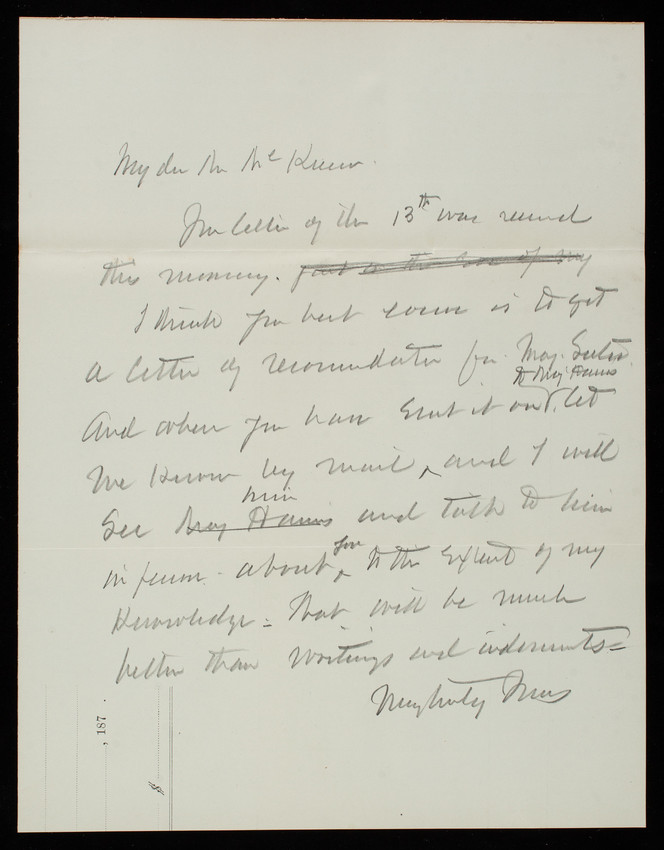 My der Mr McKuen.
Your letter of the 13th was received
this morning.
I think your best course is to get
a letter of recomendation from Maj. Suter
And when you have Sent it on to Maj Harris, let
me know by mail, and I will
See Maj Harris him and talk to him
in person - about you to the Extent of my
Knowledge = That will be much
better than writings and indorsments =
Very truly Yours
, 187 .